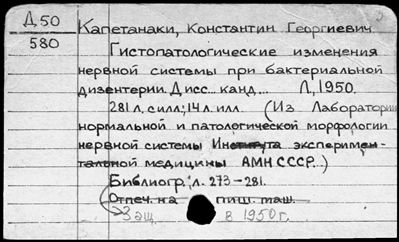 Д 50
580
Капетанаки, Константин Георгиевич
Гистопатологические изменения
нервной системы при бактериальной
дизентерии. Дисс... канд... Л, 1950.
281 л, с илл; 14 л. илл (Из Лаборатории
нормальной и патологической морфологии
нервной системы Института эксперимен-
тальной медицины АМН СССР..)
Библиогр: л. 273-281.
Отпеч. на пиш. маш.
Защ. в 1950 г.